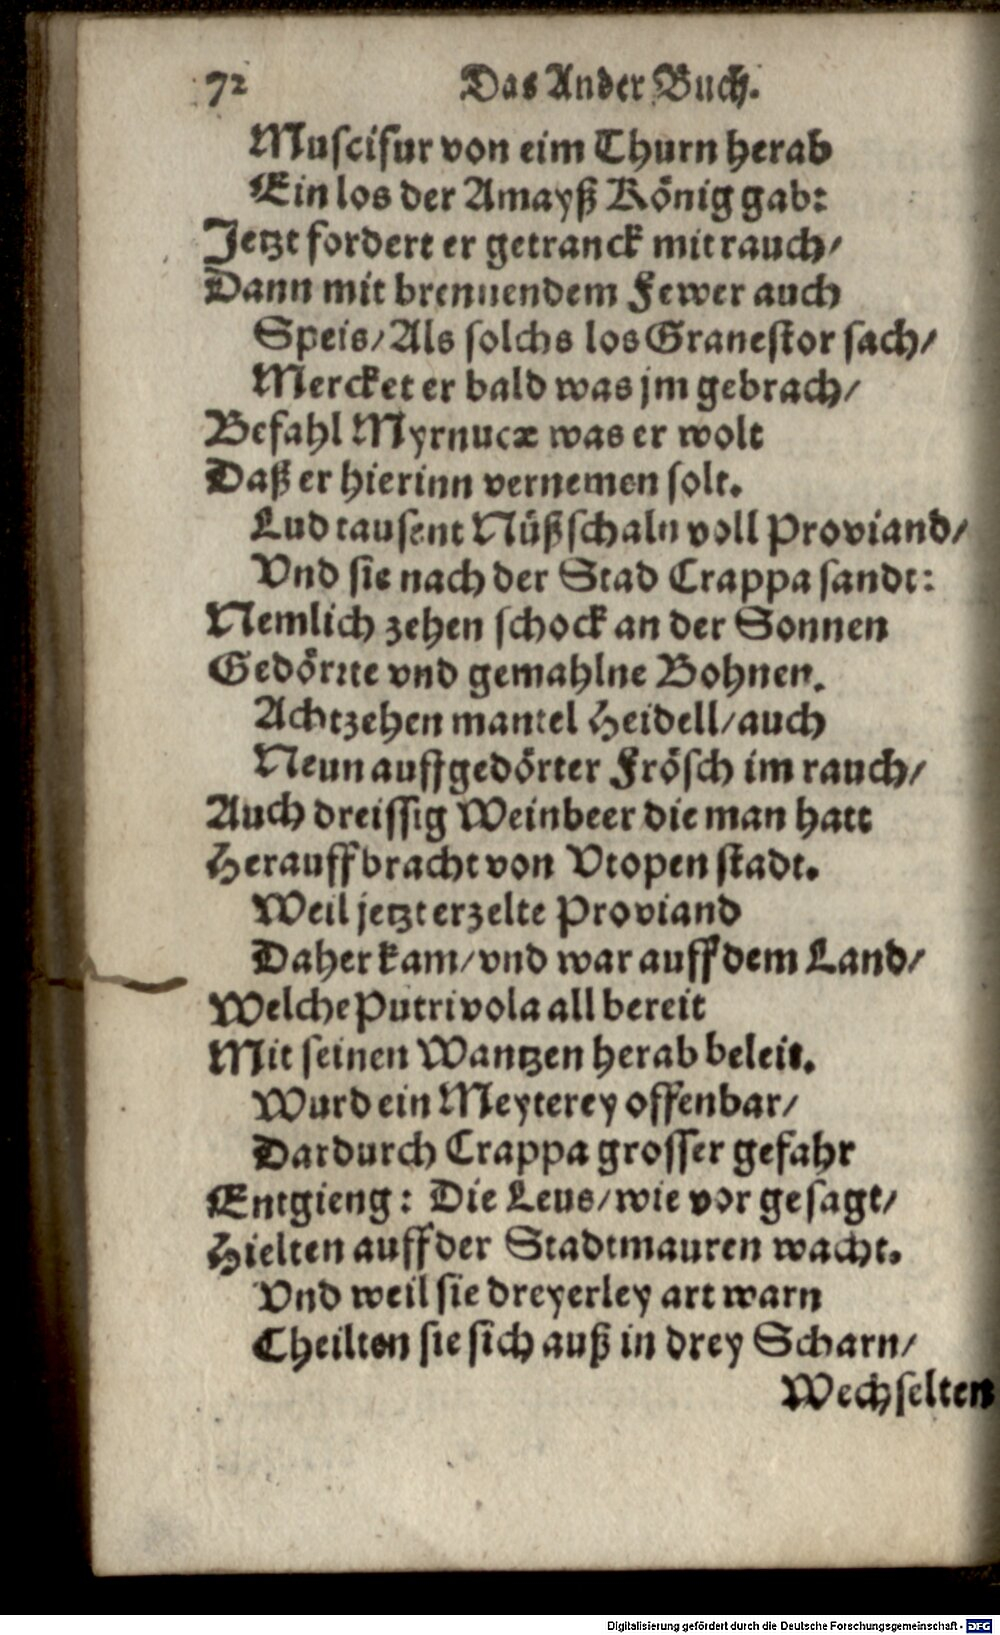 72 Das Ander Buch.
Muscifur von eim Thurn herab
Ein los der Amayß König gab:
Jetzt fordert er getranck mit rauch/
Dann mit brennendem Fewer auch
Speis/ Als solchs los Granestor sach/
Mercket er bald was jm gebrach/
Befahl Myrnucæ was er wolt
Daß er hierinn vernemen solt.
Lud tausent Nüßschaln voll Proviand/
Vnd sie nach der Stad Crappa sandt:
Nemlich zehen schock an der Sonnen
Gedörrte vnd gemahlne Bohnen.
Achtzehen mantel Heidell/ auch
Neun auffgedörter Frösch im rauch/
Auch dreissig Weinbeer die man hatt
Herauff bracht von Vtopen stadt.
Weil jetzt erzelte Proviand
Daher kam/ vnd war auff dem Land/
Welche Putrivola all bereit
Mit seinen Wantzen herab beleit.
Wurd ein Meyterey offenbar/
Dardurch Crappa grosser gefahr
Entgieng: Die Leus/ wie vor gesagt/
Hielten auff der Stadtmauren wacht.
Vnd weil sie dreyerley art warn
Theilten sie sich auß in drey Scharn/
Wechselten
Digitalisierung gefördert durch die Deutsche Forschungsgemeinschaft - DFG